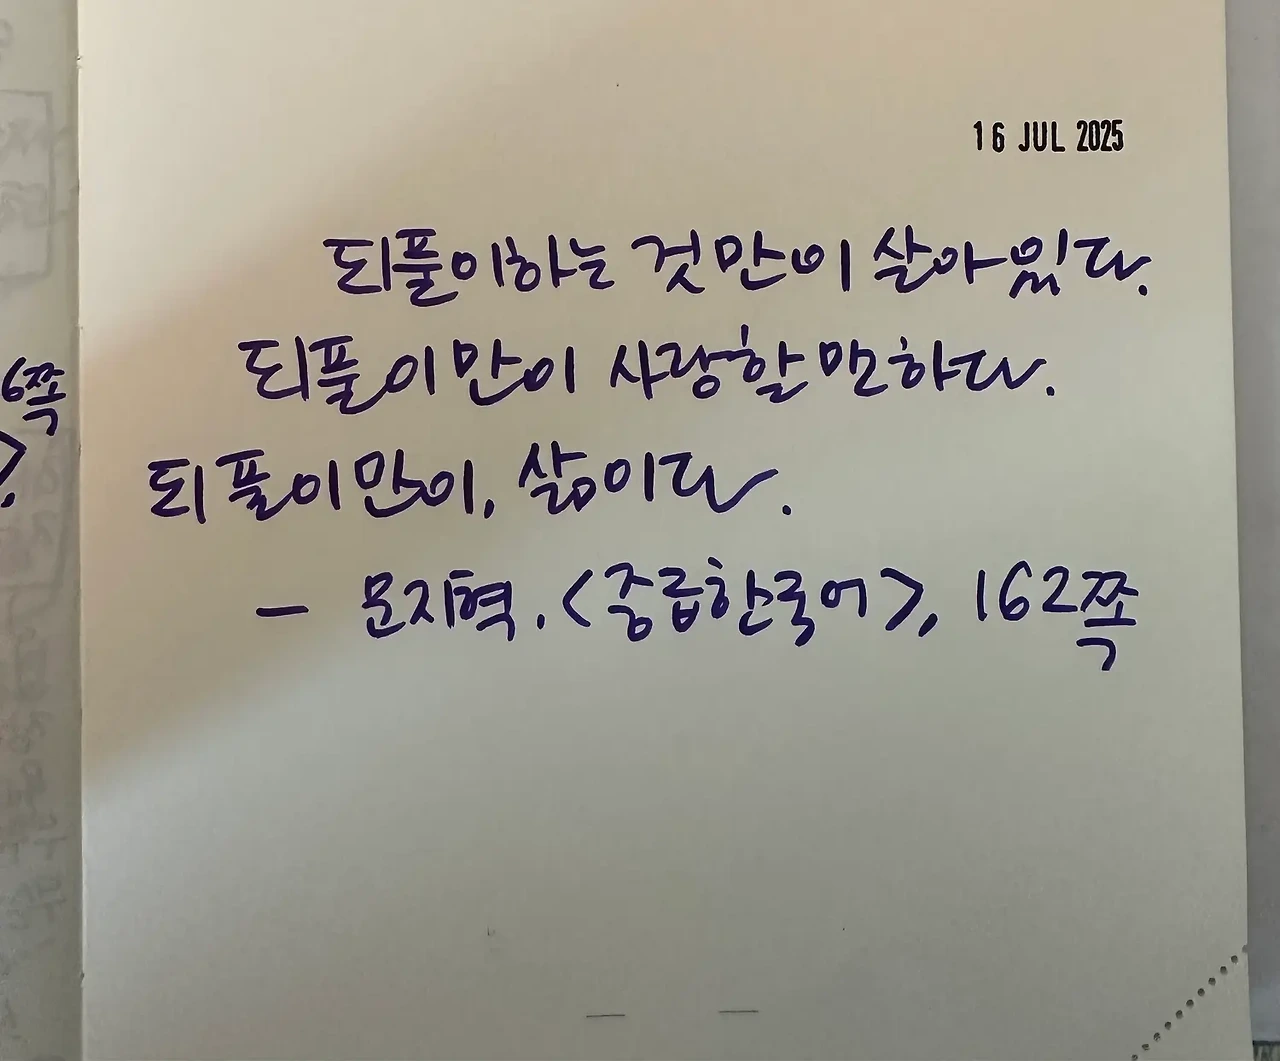 16 JUL 2025
되풀이하는 것만이 살아있다.
되풀이만이 사랑할 만하다.
되풀이만이, 삶이다.
— 문지혁. <중급한국어>, 162쪽
6쪽